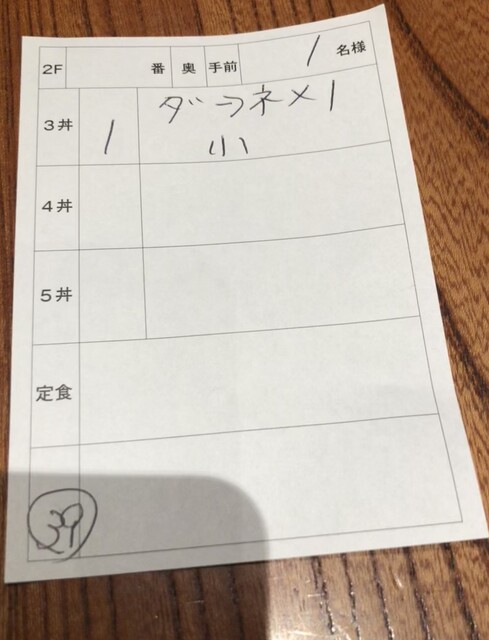 2F 番 奥 手前 1 名様
3丼 1 ダラネメ1
小
4丼
5丼
定食
39